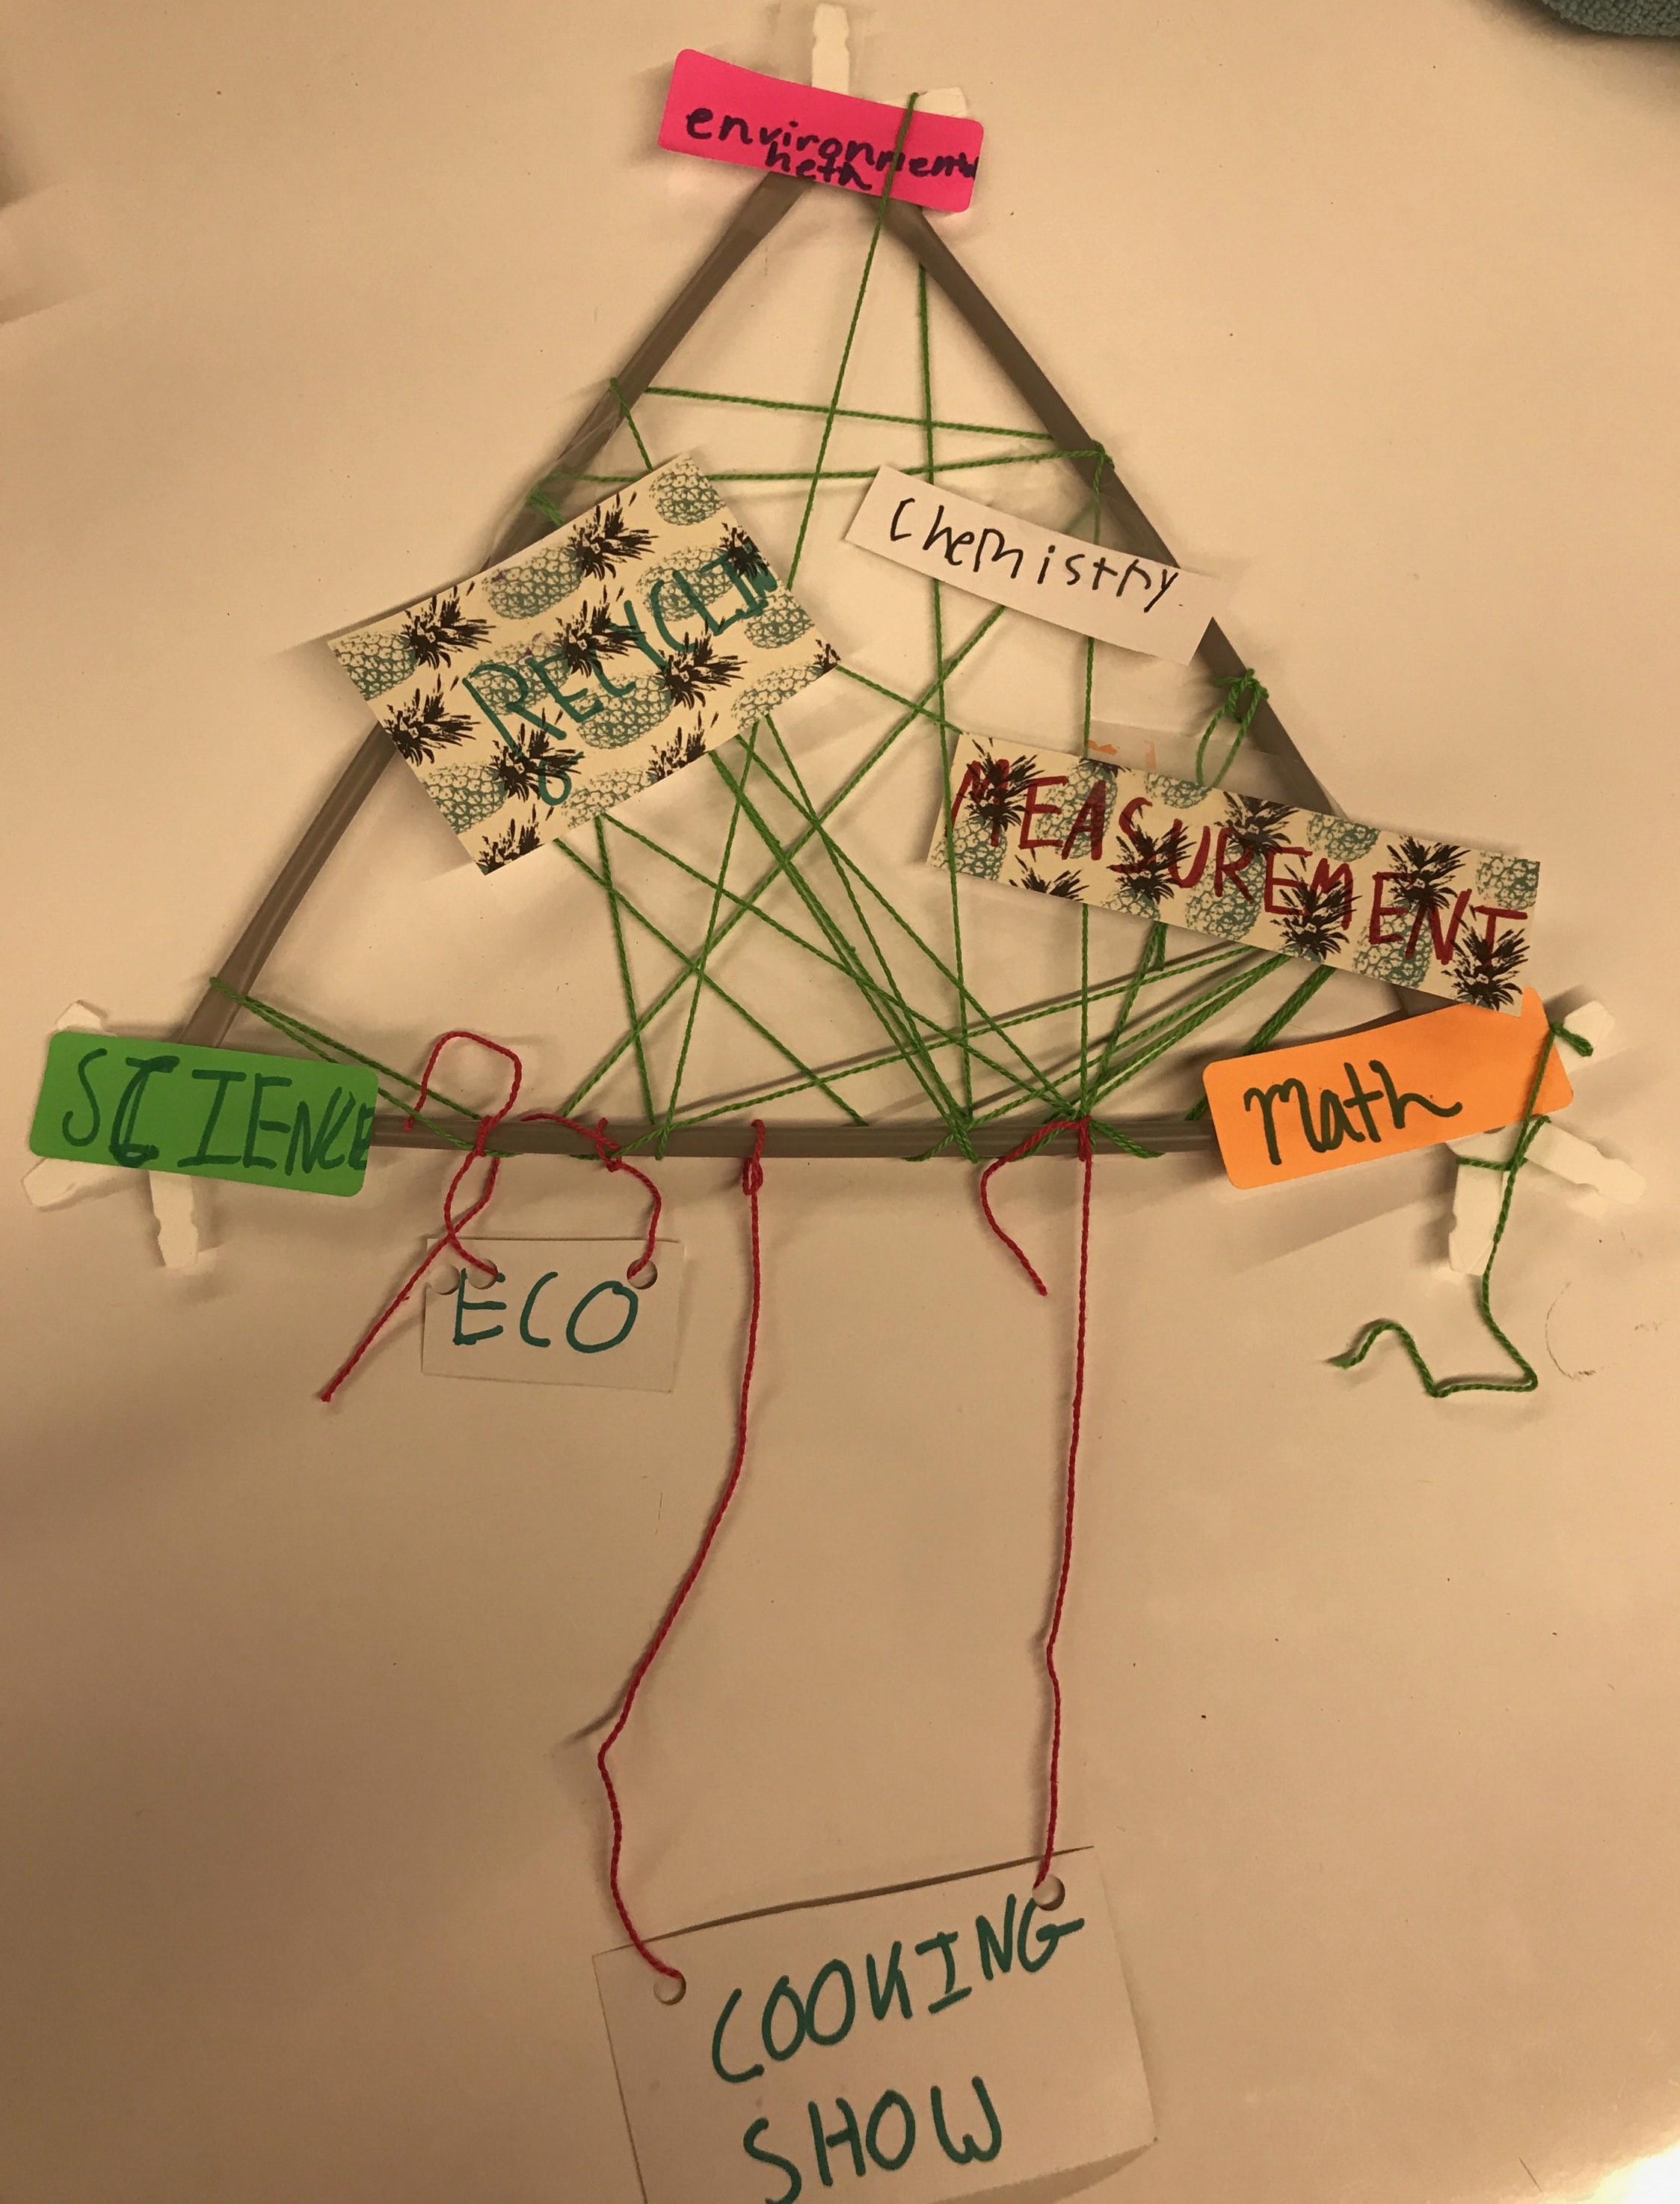 environmental
heth
Chemistry
RECYCLIN
G
MEASUREMENT
SCIENCE
Math
ECO
COOKING
SHOW